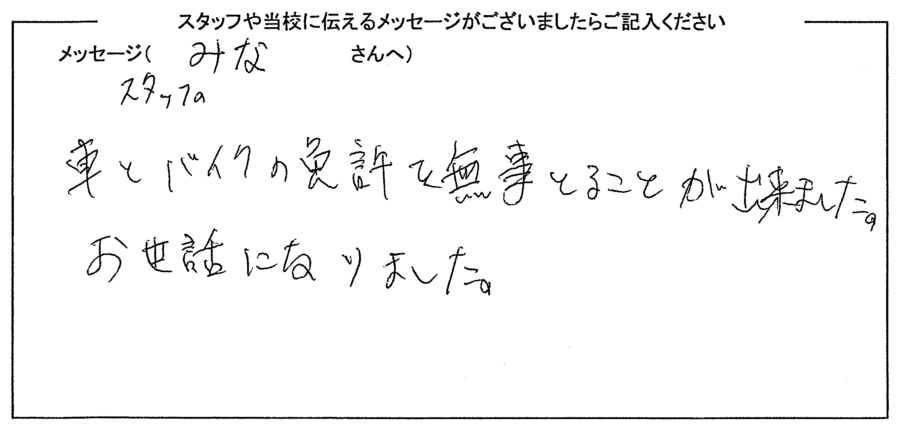 スタッフや当校に伝えるメッセージがございましたらご記入ください
メッセージ( みな さんへ)
スタッフの
車とバイクの免許を無事とることが出来ました。
お世話になりました。